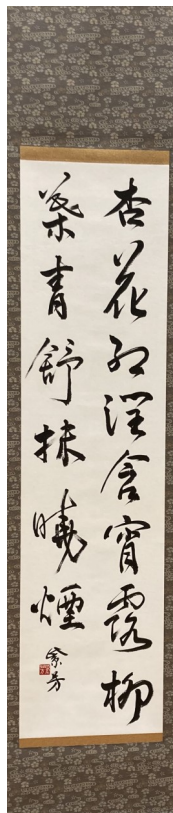 杏花紅潤含宵露柳
葉青舒抹曉煙
紫芳